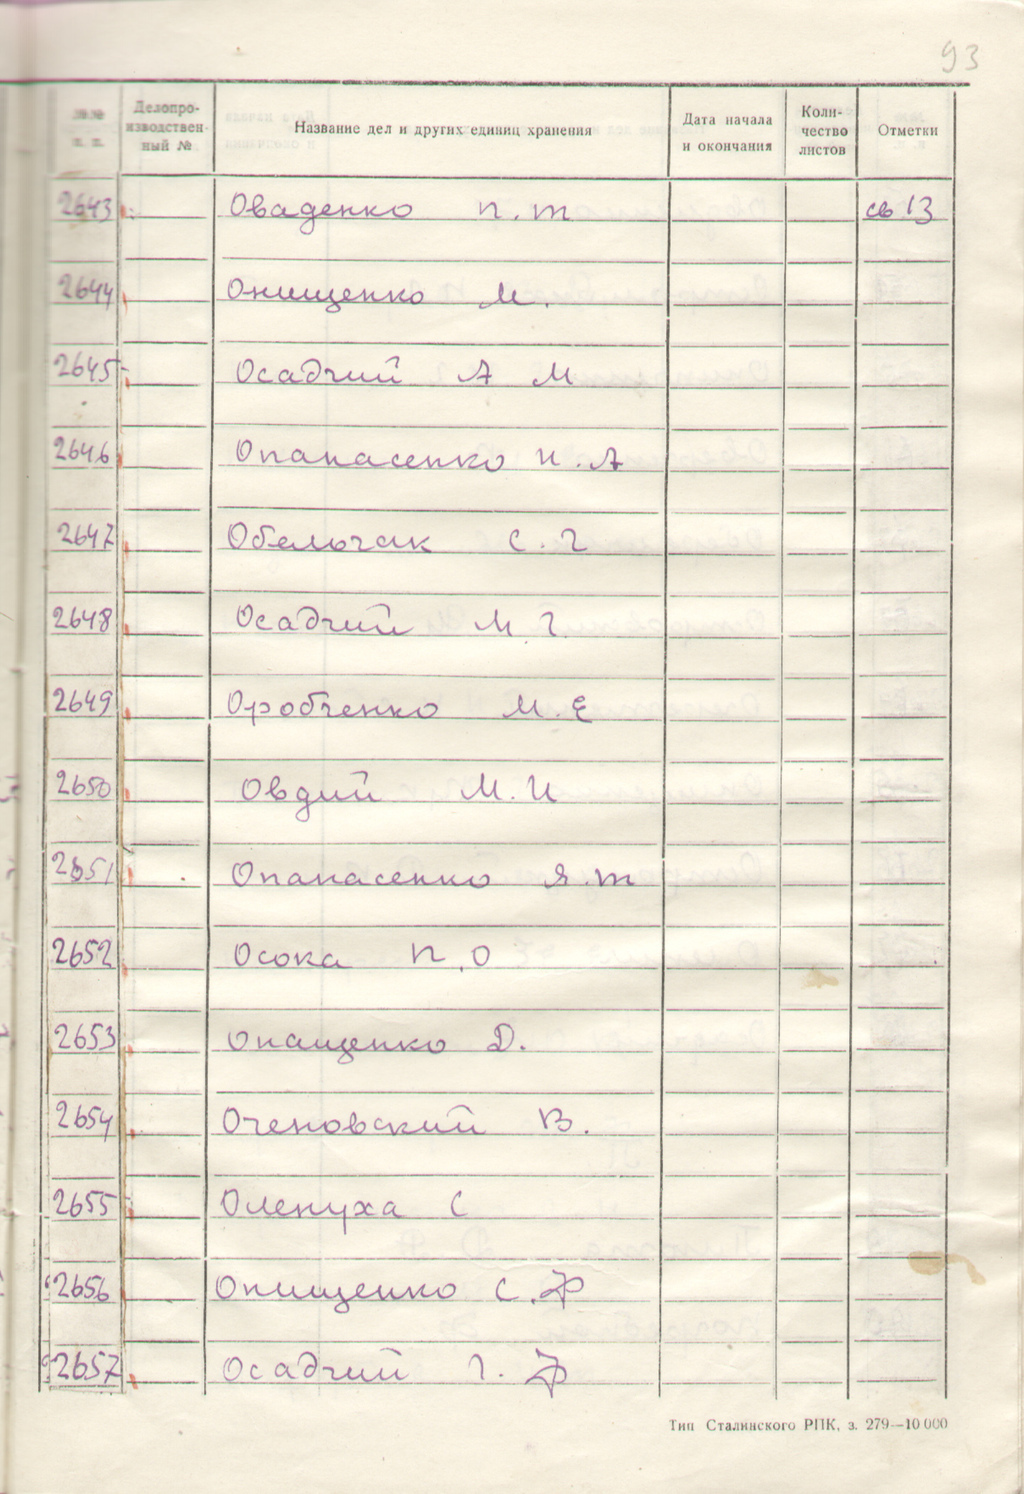 93
№№ п. п. Делопроизводственный № Название дел и других единиц хранения Дата начала и окончания Количество листов Отметки
2643 Оваденко П. Т св 13
2644 Онищенко М.
2645 Осадчий А М
2646 Опанасенко И. А
2647 Обельчак С. Г
2648 Осадчий М. Г.
2649 Оробченко М. Е
2650 Овдий М. И
2651 Опанасенко Я. Т
2652 Осока П. О
2653 Онащенко Д.
2654 Оченовский В.
2655 Оленуха С
2656 Онищенко С. Ф
2657 Осадчий Г. Ф
Тип Сталинского РПК, з. 279—10 000